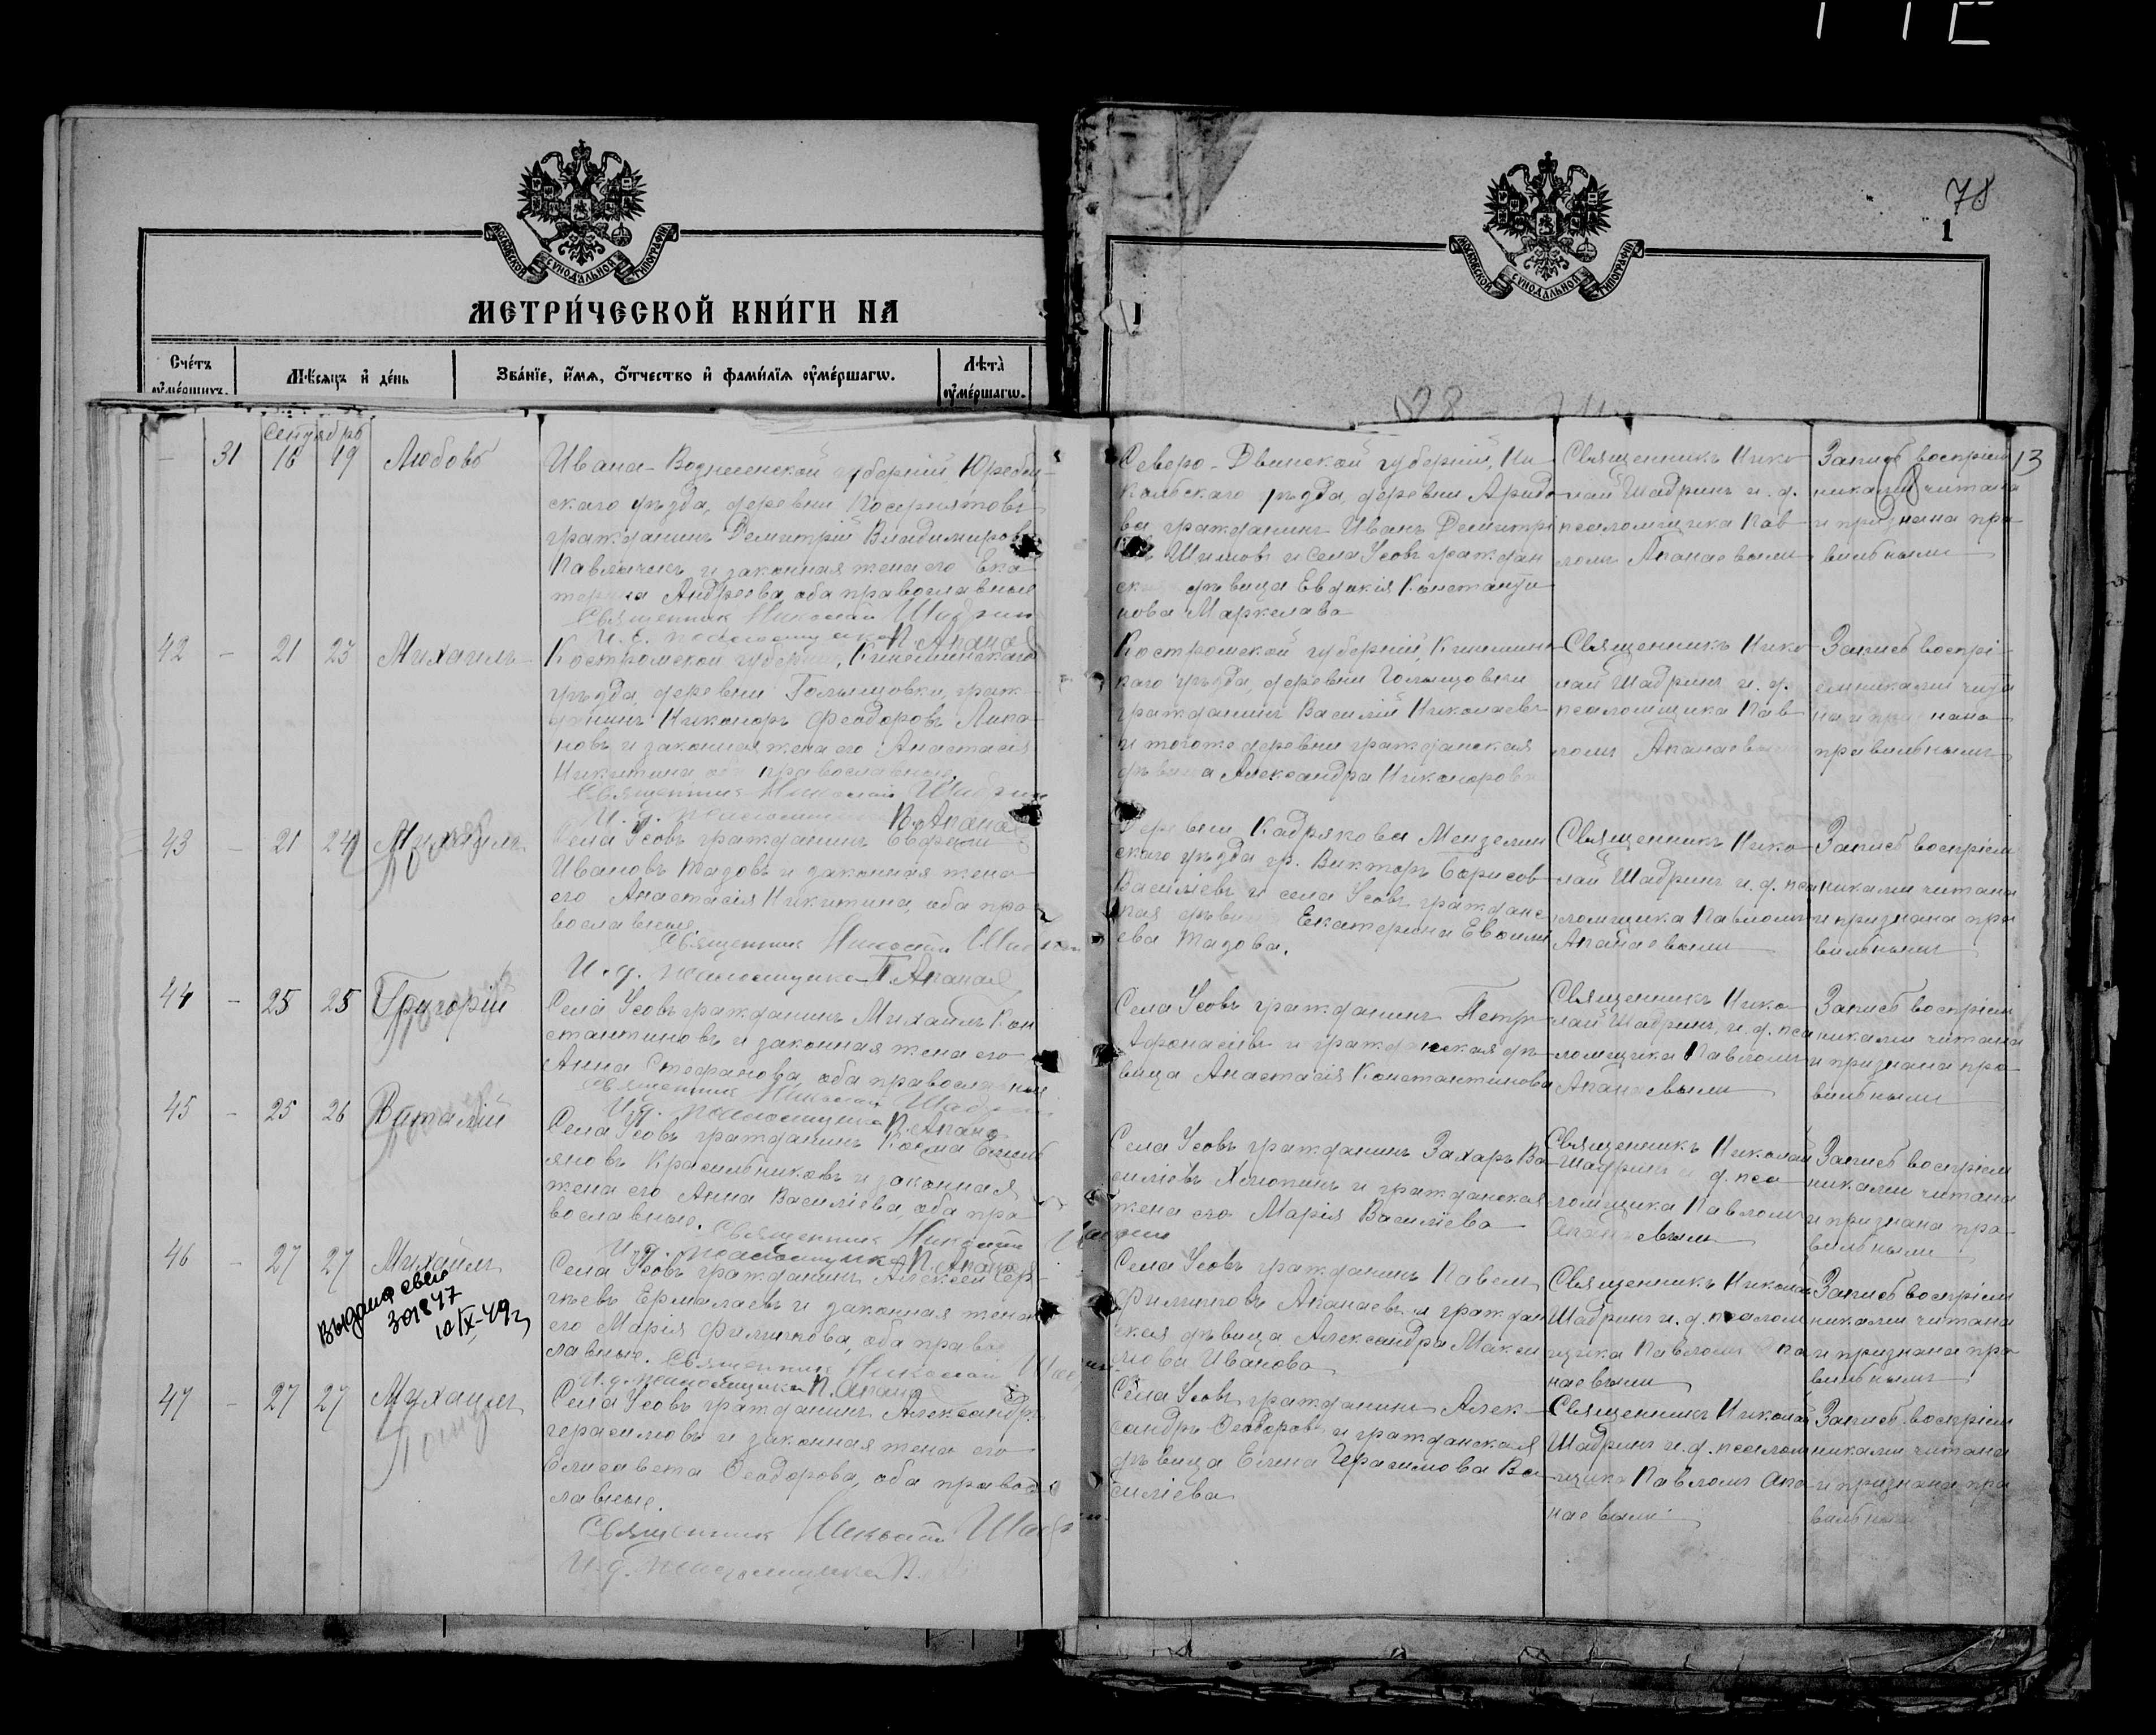 78
1
МОСКОВСКОЙ СѴНОДАЛЬНОЙ ТИПОГРАФІИ
МОСКОВСКОЙ СѴНОДАЛЬНОЙ ТИПОГРАФІИ
МЕТРИ́ЧЕСКОЙ КНИ́ГИ НА
Сче́тъ ѹ҆ме́ршихъ.
Мѣ́сяцъ и҆ де́нь
Зва́нїе, и҆́мя, ѻ҆́тчество и҆ фами́лїя ѹ҆ме́ршагѡ.
Лѣта̀ ѹ҆ме́ршагѡ.
Сентябрь
— 31 16 19 Любовь
Ивано-Вознесенской губерніи, Юрьев-
скаго уѣзда, деревни
гражданинъ Демитрій Владимировъ
и законная жена его Ека-
терина Андреева, оба православные
Священник Николай Шадрин
И. д. псаломщика П. Апанаев
Северо-Двинской губерніи, Ни-
кольскаго уѣзда, деревни
гражданинъ Иванъ Демитрі
Шишовъ и села Усовъ граждан
ск дѣвица Евдокія Константи
нова Маркелова
Священникъ Нико
лай Шадринъ и. д.
псаломщика Пав-
ломъ Апанаевымъ
Запись воспріем
никами читана
и признана пра-
вильными
13
42 — 21 23 Михаилъ
Костромской губерніи, Кинешемскаго
уѣзда, деревни Гольцовки, граж-
данинъ Никоноръ Феодоровъ Липа-
новъ и законная жена его Анастасія
Никитина оба православные.
Священник Николай Шадрин
И. д. псаломщика П. Апанаев
Костромской губерніи, Кинешемс
каго уѣзда, деревни Гольцовки
гражданинъ Василій Николаевъ
и тогоже деревни гражданская
дѣвица Александра Никонорова
Священникъ Нико
лай Шадринъ и. д.
псаломщика Пав-
ломъ Апанаевымъ
Запись воспрі-
емниками чита
на и признана
правильнымъ
43 — 21 24 Михаилъ
Села Усовъ гражданинъ
Ивановъ Тазовъ и законная жена
его Анастасія Никитина, оба пра-
вославные.
Священник Николай Шадрин
И. д. псаломщика П. Апанаев
Деревни Кадряково Мензелин
скаго уѣзда гр. Викторъ Борисов
Василіевъ и села Усовъ гражданс
кая дѣвица Екатерина
ева Тазова.
Священникъ Нико
лай Шадринъ и. д. пса
ломщика Павломъ
Апанаевымъ
Запись воспріем
никами читана
и признана пра
вильнымъ
44 — 25 25 Григорій
Села Усовъ гражданинъ Михаилъ Кон
стантиновъ и законная жена его
Анна Стефанова, оба православные
Священник Николай Шадрин
И. д. псаломщика П. Апанаев
Села Усовъ гражданинъ Петръ
Афонасіевъ и гражданская дѣ-
вица Анастасія Константинова
Священникъ Нико
лай Шадринъ, и. д. пса
ломщика Павломъ
Апанаевымъ
Запись воспріем
никами читана
и признана пра-
вильными
45 — 25 26 Виталій
Села Усовъ гражданинъ Косма Емель
яновъ Красильниковъ и законная
жена его Анна Василіева, оба пра
вославные. Священник Николай
И. д. псаломщика П. Апанаев
Села Усовъ гражданинъ Захаръ Ва
силіевъ Хлюпинъ и гражданская
жена его Марія Василіева
Священникъ Николай
Шадринъ и д. пса
ломщика Павломъ
Апанаевым
Запись воспріем
никами читана
и признана пра-
вильными
46 — 27 27 Михаилъ
Выдано свид
301847
10/IX-49г
Села Усовъ гражданинъ Алексей Сер-
гѣевъ Ермолаевъ и законная жена
его Марія Филиппова, оба правос
лавные. Священник Николай
И. д. псаломщика П. Апанаев
Села Усовъ гражданинъ Павелъ
Филипповъ Апанаевъ и граждан
ская дѣвица Александра Макси
мова Иванова
Священникъ Николай
Шадринъ и. д. псалом
щика Павломъ Апа
наевымъ
Запись воспріем
никами читана
и признана пра
вильнымъ
47 — 27 27 Михаилъ
Села Усовъ гражданинъ Александръ
Герасимовъ и законная жена его
Елисавета Феодорова, оба правос
лавные.
Священник Николай Шадр
И. д. псаломщика П.
Села Усовъ гражданинъ Алек-
сандръ Феодоровъ и гражданская
дѣвица Елена Герасимова Ва
силіева
Священникъ Николай
Шадринъ и. д. псалом
щика Павломъ Апа-
наевымъ
Запись воспріем
никами читана
и признана пра
вильным